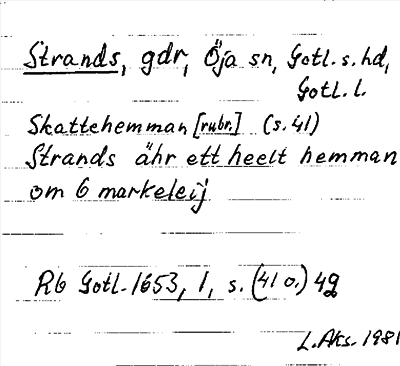 Strands, gdr, Öja sn, Gotl. s. hd,
Gotl. l.
Skattehemman [rubr.] (s. 41)
Strands ähr ett heelt hemman
om 6 markeleij
Rb Gotl. 1653, 1, s. (41 o.) 42
L. Aks. 1981